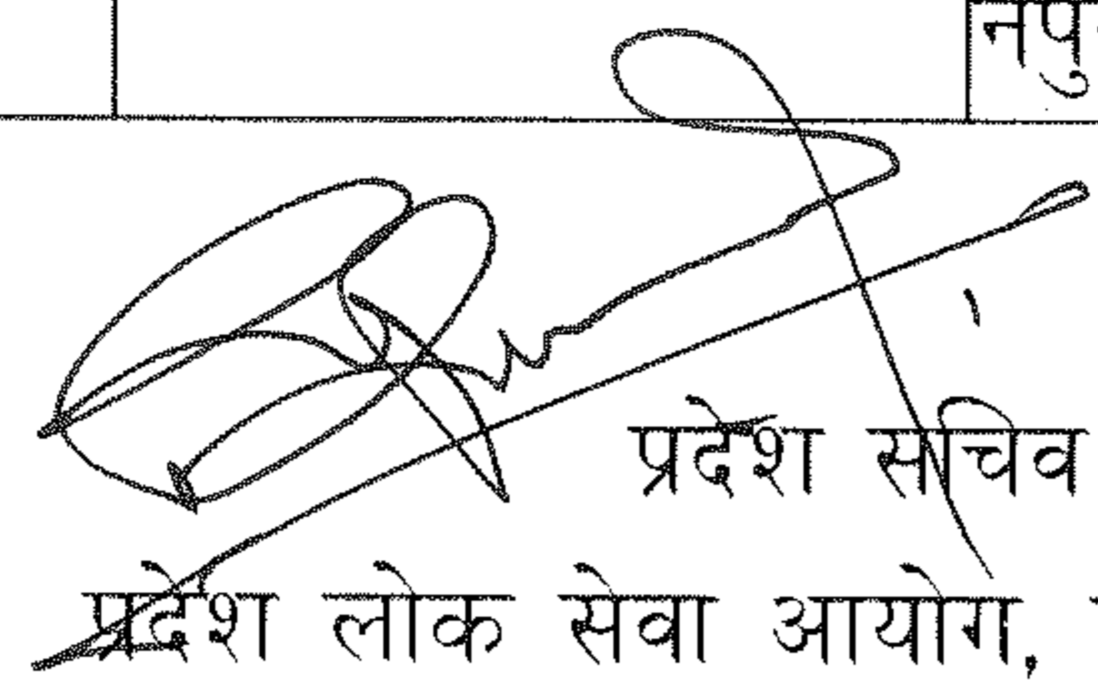 नपु
प्रदेश सचिव
प्रदेश लोक सेवा आयोग,